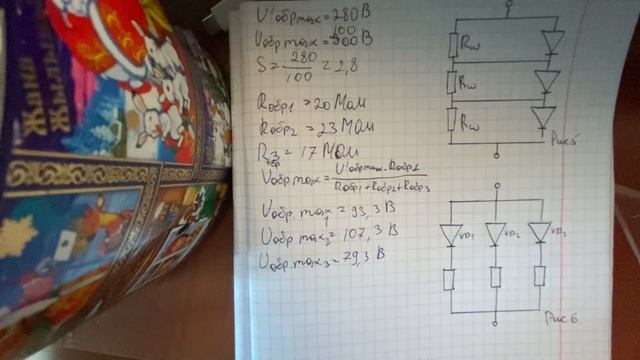 U'обр max = 280 В
Uобр max = 100 В
S = 280/100 = 2,8
Rобр1 = 20 МОм
Rобр2 = 23 МОм
Rобр3 = 17 МОм
Uобр max = U'обр max · Rобр1 / Rобр1 + Rобр2 + Rобр3
Uобр. max1 = 93,3 В
Uобр. max2 = 107,3 В
Uобр. max3 = 79,3 В
Rш
Rш
Rш
Рис 5
VD1 VD2 VD3
Рис 6